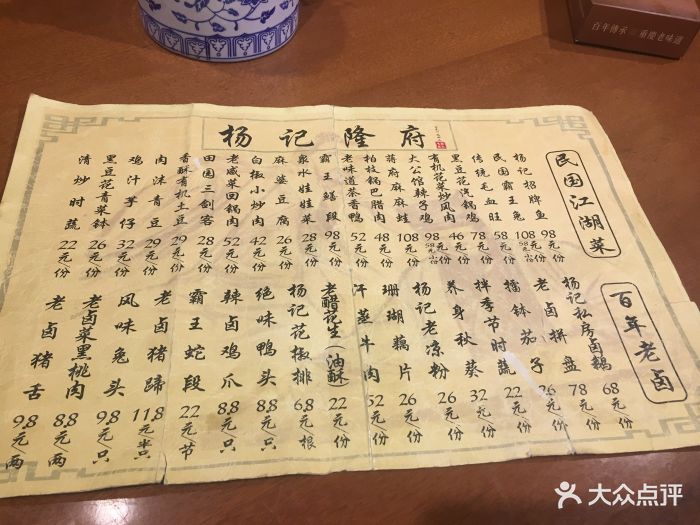 百年传承 重庆老味道
杨记隆府
民国江湖菜
杨记招牌鱼 98元份
民国霸王兔 108元份 58元半份
传统毛血旺 58元份
黑豆花汽锅鸡 78元份
有机花菜炒凤肉 46元份
大公馆辣子鸡 98元份 58元半份
蒋府麻麻蛙 108元份
柏枝锅巴腊肉 48元份
老味道茶香鸭 52元份
霸王鳝段 98元份
泉水娃娃菜 28元份
麻婆豆腐 26元份
白椒小炒肉 42元份
老咸菜回锅肉 52元份
田园三剑客 28元份
香酥有机豆 29元份
肉沫青豆 29元份
鸡汁芋仔 32元份
黑豆花青菜钵 26元份
清炒时蔬 22元份
百年老卤
杨记私房卤鹅 68元份
老卤拼盘 78元份
擂钵茄子 26元份
拌季节时蔬 22元份
养身秋葵 32元份
杨记老凉粉 26元份
珊瑚藕片 26元份
汗蒸牛肉 52元份
老醋花生(油酥) 22元份
杨记花椒排 6.8元根
绝味鸭头 8.8元只
辣卤鸡爪 8.8元只
霸王蛇段 22元节
老卤猪蹄 11.8元半只
风味兔头 9.8元只
老卤菜黑桃肉 8.8元两
老卤猪舌 9.8元两
大众点评